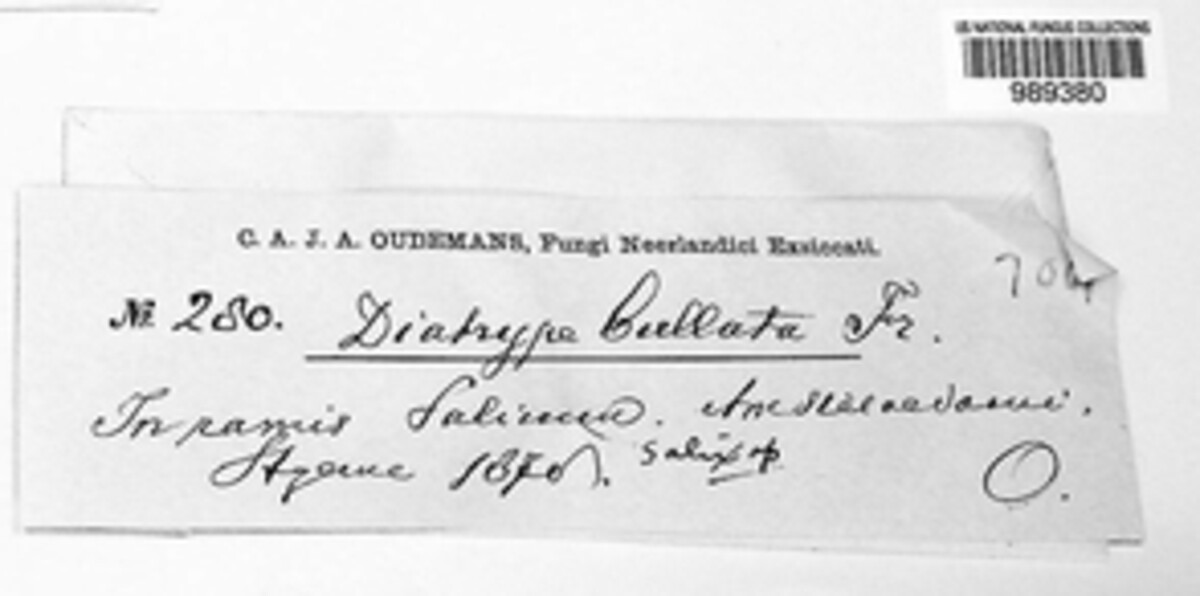 US NATIONAL FUNGUS COLLECTIONS
989380
C. A. J. A. OUDEMANS, Fungi Neerlandici Exsiccati.
№ 280. Diatrype bullata Fr.
In ramis Salicum. Amstelaedami.
Hyeme 187
Salix sp
O.